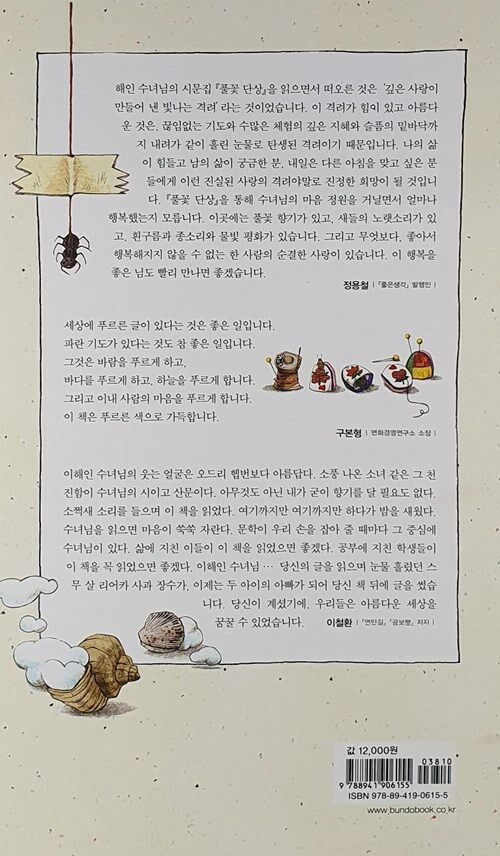 해인 수녀님의 시문집 『풀꽃 단상』을 읽으면서 떠오른 것은 '깊은 사랑이
만들어 낸 빛나는 격려'라는 것이었습니다. 이 격려가 힘이 있고 아름다
운 것은, 끊임없는 기도와 수많은 체험의 깊은 지혜와 슬픔의 밑바닥까
지 내려가 같이 흘린 눈물로 탄생된 격려이기 때문입니다. 나의 삶
이 힘들고 남의 삶이 궁금한 분, 내일은 다른 아침을 맞고 싶은 분
들에게 이런 진실된 사랑의 격려야말로 진정한 희망이 될 것입니
다. 『풀꽃 단상』을 통해 수녀님의 마음 정원을 거닐면서 얼마나
행복했는지 모릅니다. 이곳에는 풀꽃 향기가 있고, 새들의 노랫소리가 있
고, 흰구름과 종소리와 물빛 평화가 있습니다. 그리고 무엇보다, 좋아서
행복해지지 않을 수 없는 한 사람의 순결한 사랑이 있습니다. 이 행복을
좋은 님도 빨리 만나면 좋겠습니다.
정용철 | 『좋은생각』 발행인 |
세상에 푸르른 글이 있다는 것은 좋은 일입니다.
파란 기도가 있다는 것도 참 좋은 일입니다.
그것은 바람을 푸르게 하고,
바다를 푸르게 하고, 하늘을 푸르게 합니다.
그리고 이내 사람의 마음을 푸르게 합니다.
이 책은 푸르른 색으로 가득합니다.
구본형 | 변화경영연구소 소장 |
이해인 수녀님의 웃는 얼굴은 오드리 헵번보다 아름답다. 소풍 나온 소녀 같은 그 천
진함이 수녀님의 시이고 산문이다. 아무것도 아닌 내가 굳이 향기를 달 필요도 없다.
소쩍새 소리를 들으며 이 책을 읽었다. 여기까지만 여기까지만 하다가 밤을 새웠다.
수녀님을 읽으면 마음이 쑥쑥 자란다. 문학이 우리 손을 잡아 줄 때마다 그 중심에
수녀님이 있다. 삶에 지친 이들이 이 책을 읽었으면 좋겠다. 공부에 지친 학생들이
이 책을 꼭 읽었으면 좋겠다. 이해인 수녀님 … 당신의 글을 읽으며 눈물 흘렸던 스
무 살 리어카 사과 장수가, 이제는 두 아이의 아빠가 되어 당신 책 뒤에 글을 썼습
니다. 당신이 계셨기에, 우리들은 아름다운 세상을
꿈꿀 수 있었습니다. 이철환 | 『연탄길』, 『곰보빵』 저자 |
값 12,000원
03810
9 788941 906155
ISBN 978-89-419-0615-5
www.bundobook.co.kr